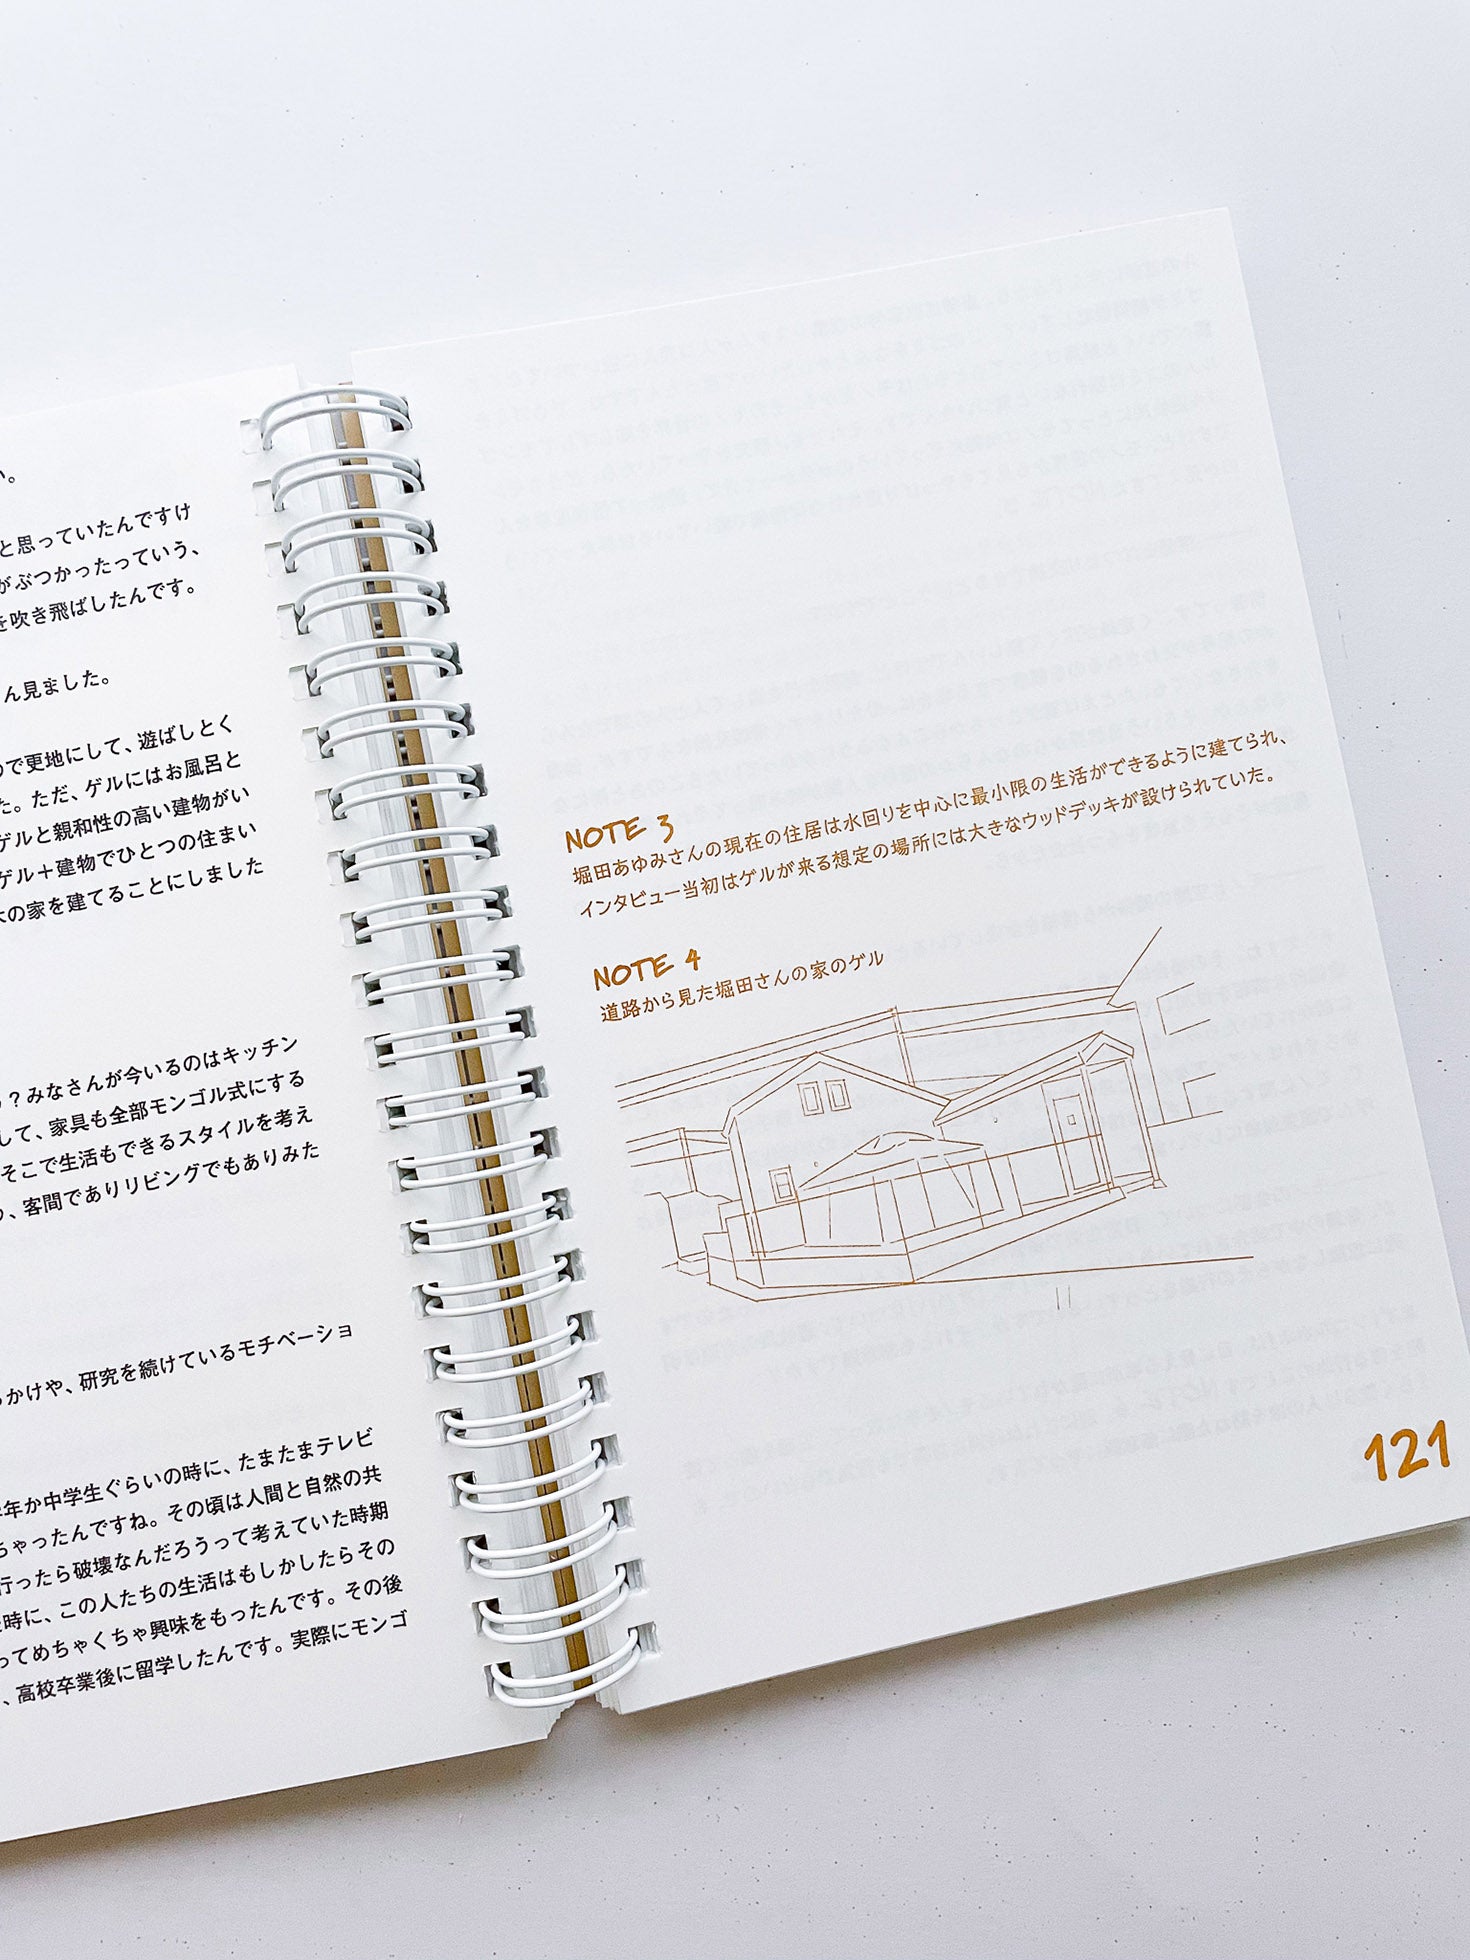 い。
と思っていたんですけ
がぶつかったっていう、
を吹き飛ばしたんです。
ん見ました。
ので更地にして、遊ばしとく
た。ただ、ゲルにはお風呂と
ゲルと親和性の高い建物がい
ゲル＋建物でひとつの住まい
木の家を建てることにしました
？みなさんが今いるのはキッチン
して、家具も全部モンゴル式にする
そこで生活もできるスタイルを考え
、客間でありリビングでもありみた
っかけや、研究を続けているモチベーショ
年か中学生ぐらいの時に、たまたまテレビ
ちゃったんですね。その頃は人間と自然の共
行ったら破壊なんだろうって考えていた時期
時に、この人たちの生活はもしかしたらその
ってめちゃくちゃ興味をもったんです。その後
、高校卒業後に留学したんです。実際にモンゴ
NOTE 3
堀田あゆみさんの現在の住居は水回りを中心に最小限の生活ができるように建てられ、
インタビュー当初はゲルが来る想定の場所には大きなウッドデッキが設けられていた。
NOTE 4
道路から見た堀田さんの家のゲル
121